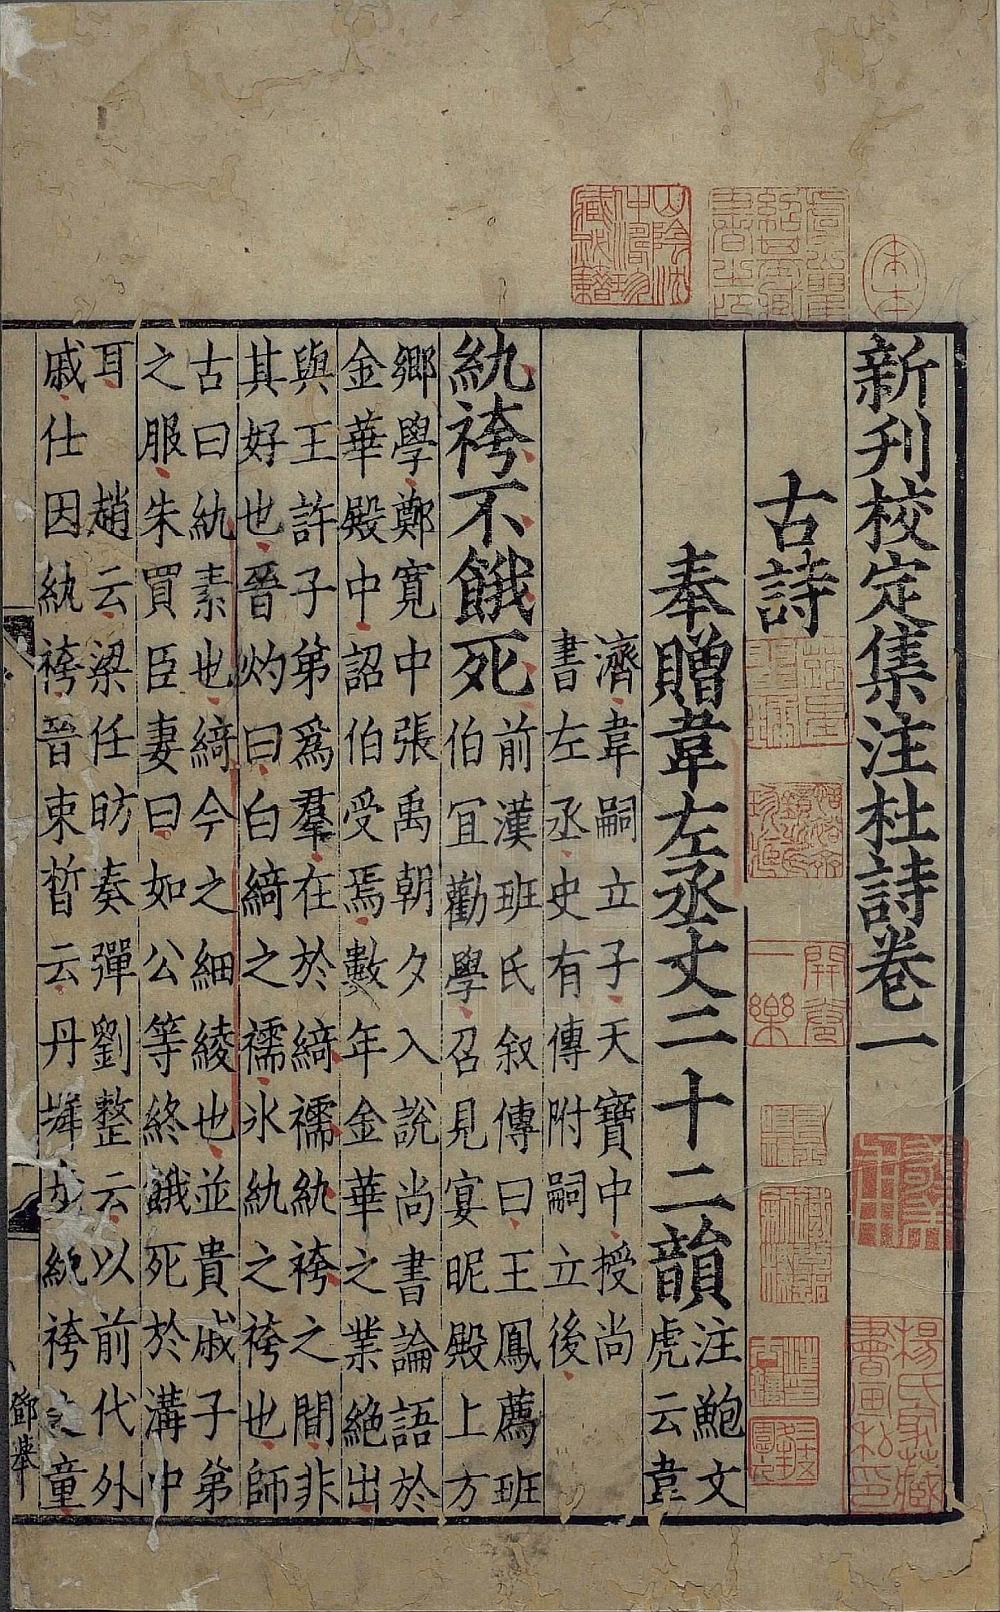 新刋校定集注杜詩卷一
古詩
奉贈韋左丞丈二十二韻
注鮑文
虎云韋
濟韋嗣立子天寶中授尚
書左丞史有傳附嗣立後
紈袴不餓死
前漢班氏叙傳曰王鳳薦班
伯宜勸學召見宴昵殿上方
鄉學鄭寛中張禹朝夕入說尚書論語於
金華殿中詔伯受焉數年金華之業絶出
與王許子弟爲羣在於綺襦紈袴之間非
其好也晉灼曰白綺之襦氷紈之袴也師
古曰紈素也綺今之細綾也並貴戚子弟
之服朱買臣妻曰如公等終餓死於溝中
耳 趙云梁任昉奏彈劉整云以前代外
戚仕因紈袴晉束晳云丹墀 紈袴之童
鄧舉
山陰沈仲濤珍藏秘籍
開卷一樂
楊氏家藏書畫私印